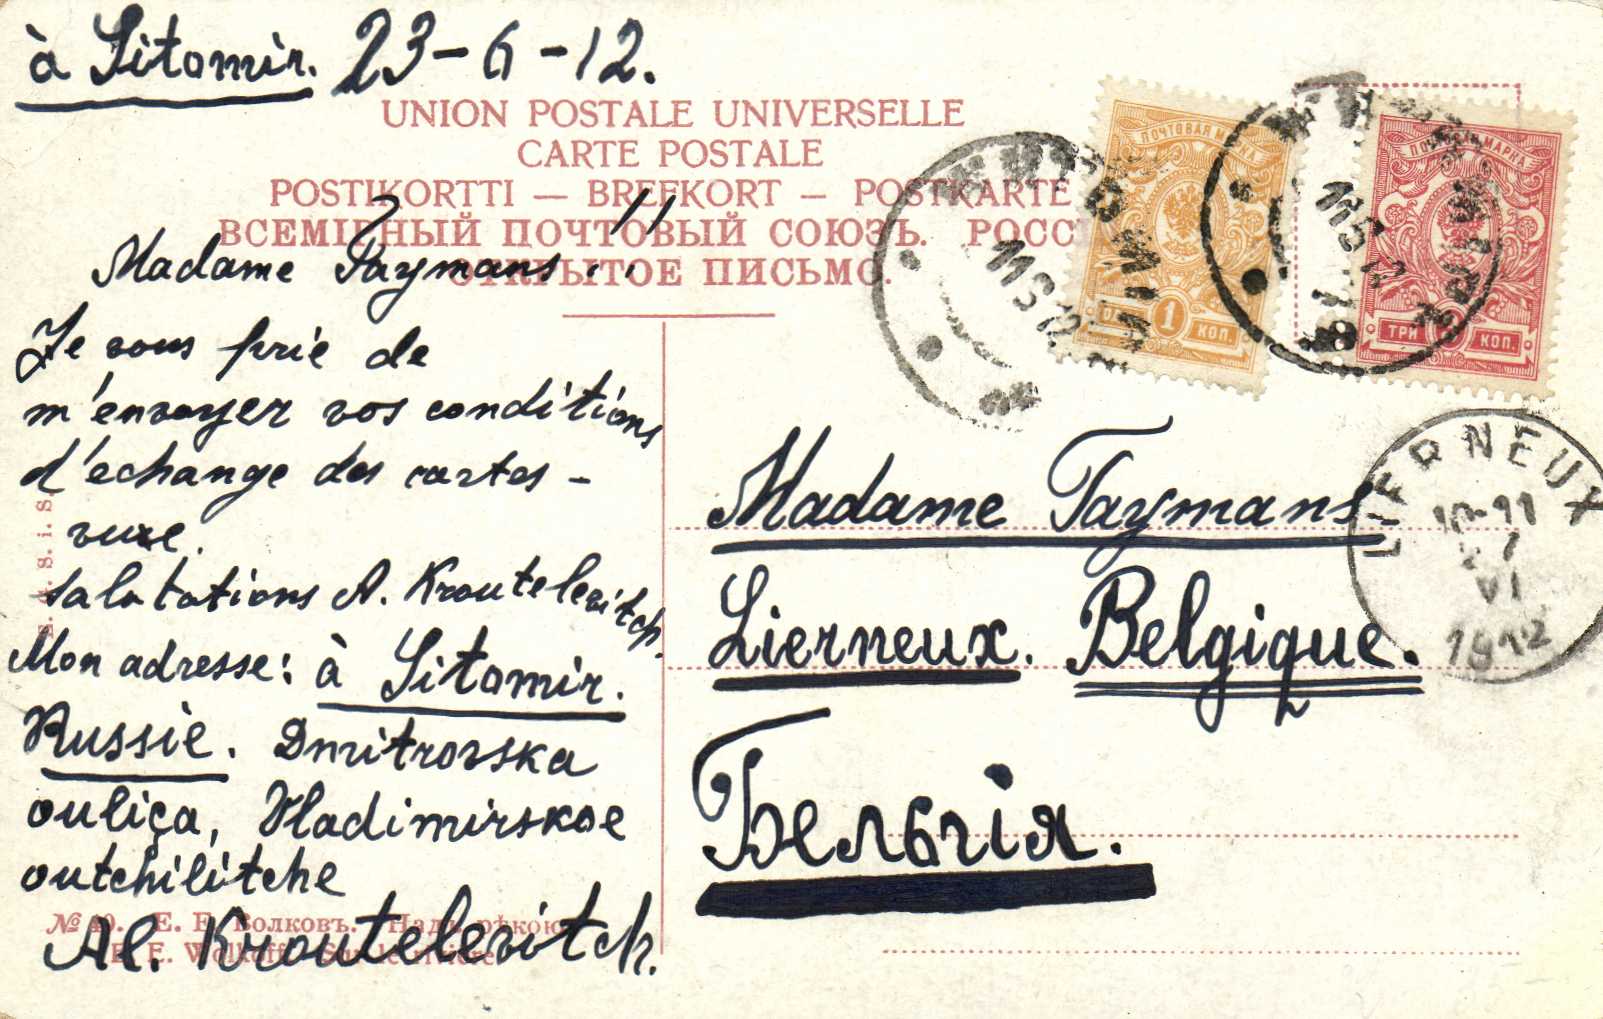 à Jitomir. 23-6-12.
UNION POSTALE UNIVERSELLE
CARTE POSTALE
POSTIKORTTI — BREFKORT — POSTKARTE
ВСЕМІРНЫЙ ПОЧТОВЫЙ СОЮЗЪ. РОСС
ОТКРЫТОЕ ПИСЬМО.
ПОЧТОВАЯ МАРКА
1 КОП.
ПОЧТОВАЯ МАРКА
ТРИ КОП.
Madame Taymans!!
Je vous prie de
m'envoyer vos conditions
d'echange des cartes-
vuxe.
salutations A. Kroutelevitch.
Mon adresse: à Jitomir.
Russie. Dmitrovska
ouliça, Vladimirskoe
outchilitche
Al. Kroutelevitch.
Madame Taymans
Lierneux. Belgique.
Бельгія.
LIERNEUX
10-11
VI
1912
Е. Волковъ. Надъ рѣкою
E. Wolkoff. Sur le rivière